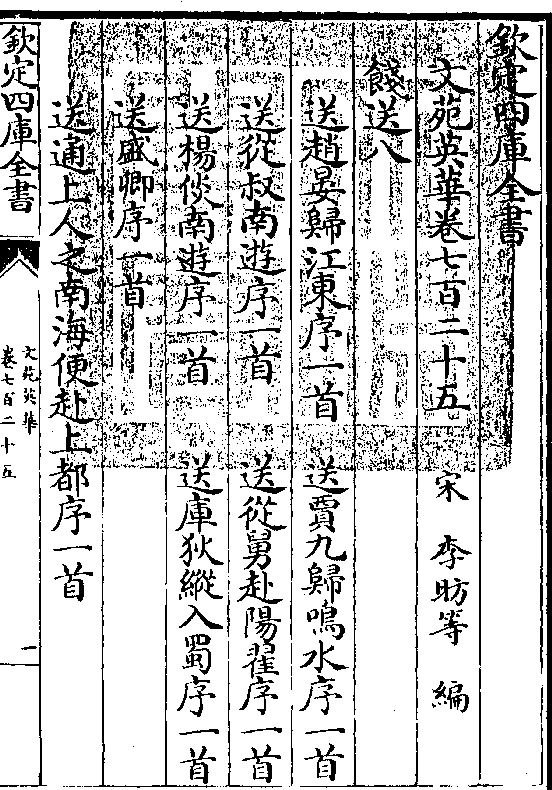 欽定四庫全書
文苑英華卷七百二十五　宋　李昉等　編
餞送八
送趙晏歸江東序一首　送賈九歸鳴水序一首
送從叔南遊序一首　送從舅赴陽翟序一首
送楊倓南遊序一首　送庫狄縱入蜀序一首
送盛卿序一首
送通上人之南海便赴上都序一首
欽定四庫全書
文苑英華
卷七百二十五
一